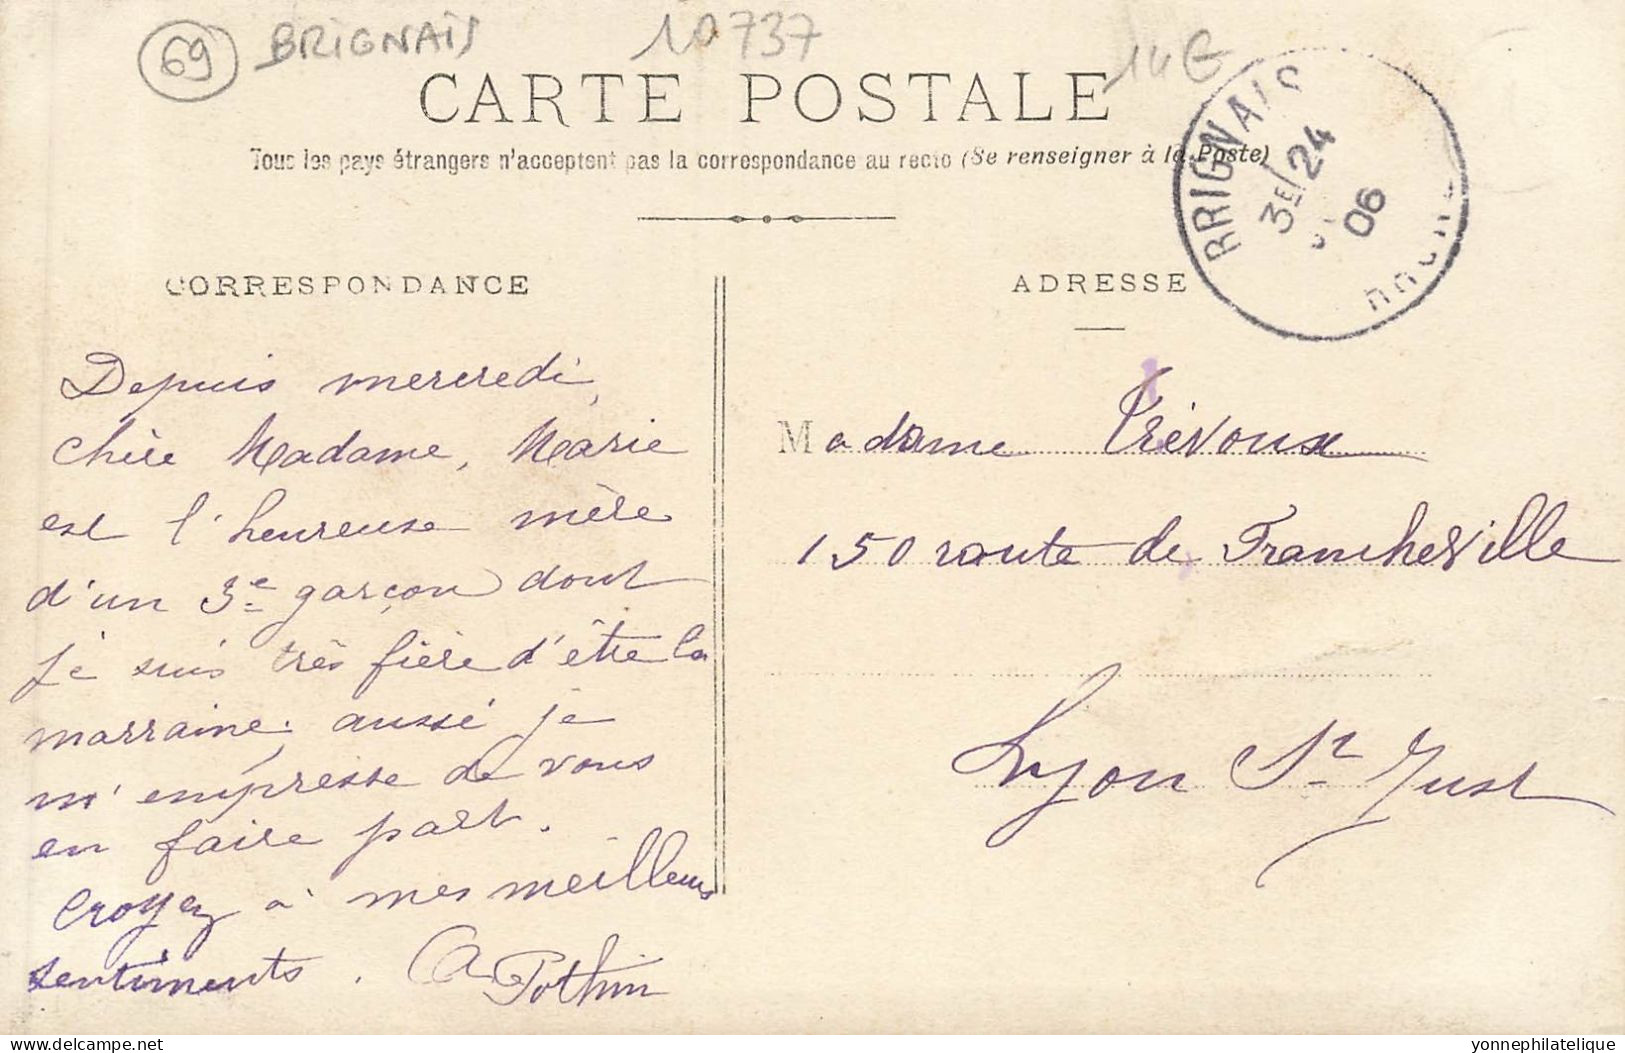 69 BRIGNAIS 10737 14€
CARTE POSTALE
Tous les pays étrangers n'acceptent pas la correspondance au recto (Se renseigner à la Poste)
BRIGNAIS
3E 24
06
RHONE
CORRESPONDANCE
Depuis mercredi,
chère Madame, Marie
est l'heureuse mère
d'un 3e garçon dont
je suis très fière d'être la
marraine; aussi je
m'empresse de vous
en faire part.
Croyez à mes meilleurs
sentiments. A Pothin
ADRESSE
Madame Trévoux
150 route de Francheville
Lyon St Just
yonnephilatelie.com
yonnephilatelique